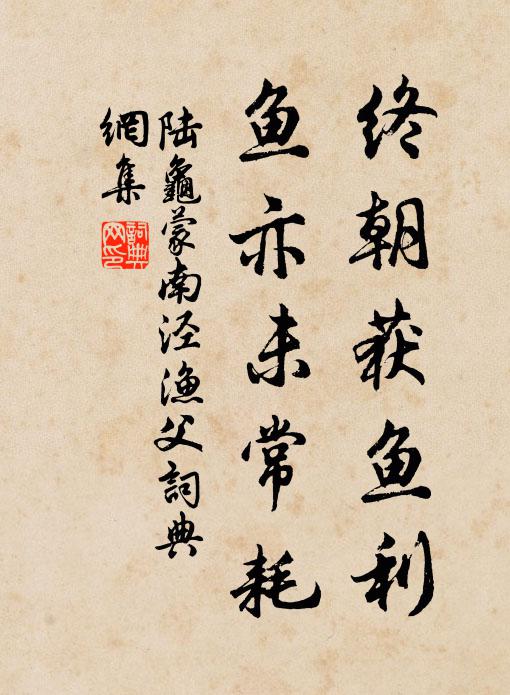 终朝获鱼利
鱼亦未常耗
陆龜蒙南泾渔父詞典
網集
詞典
网印